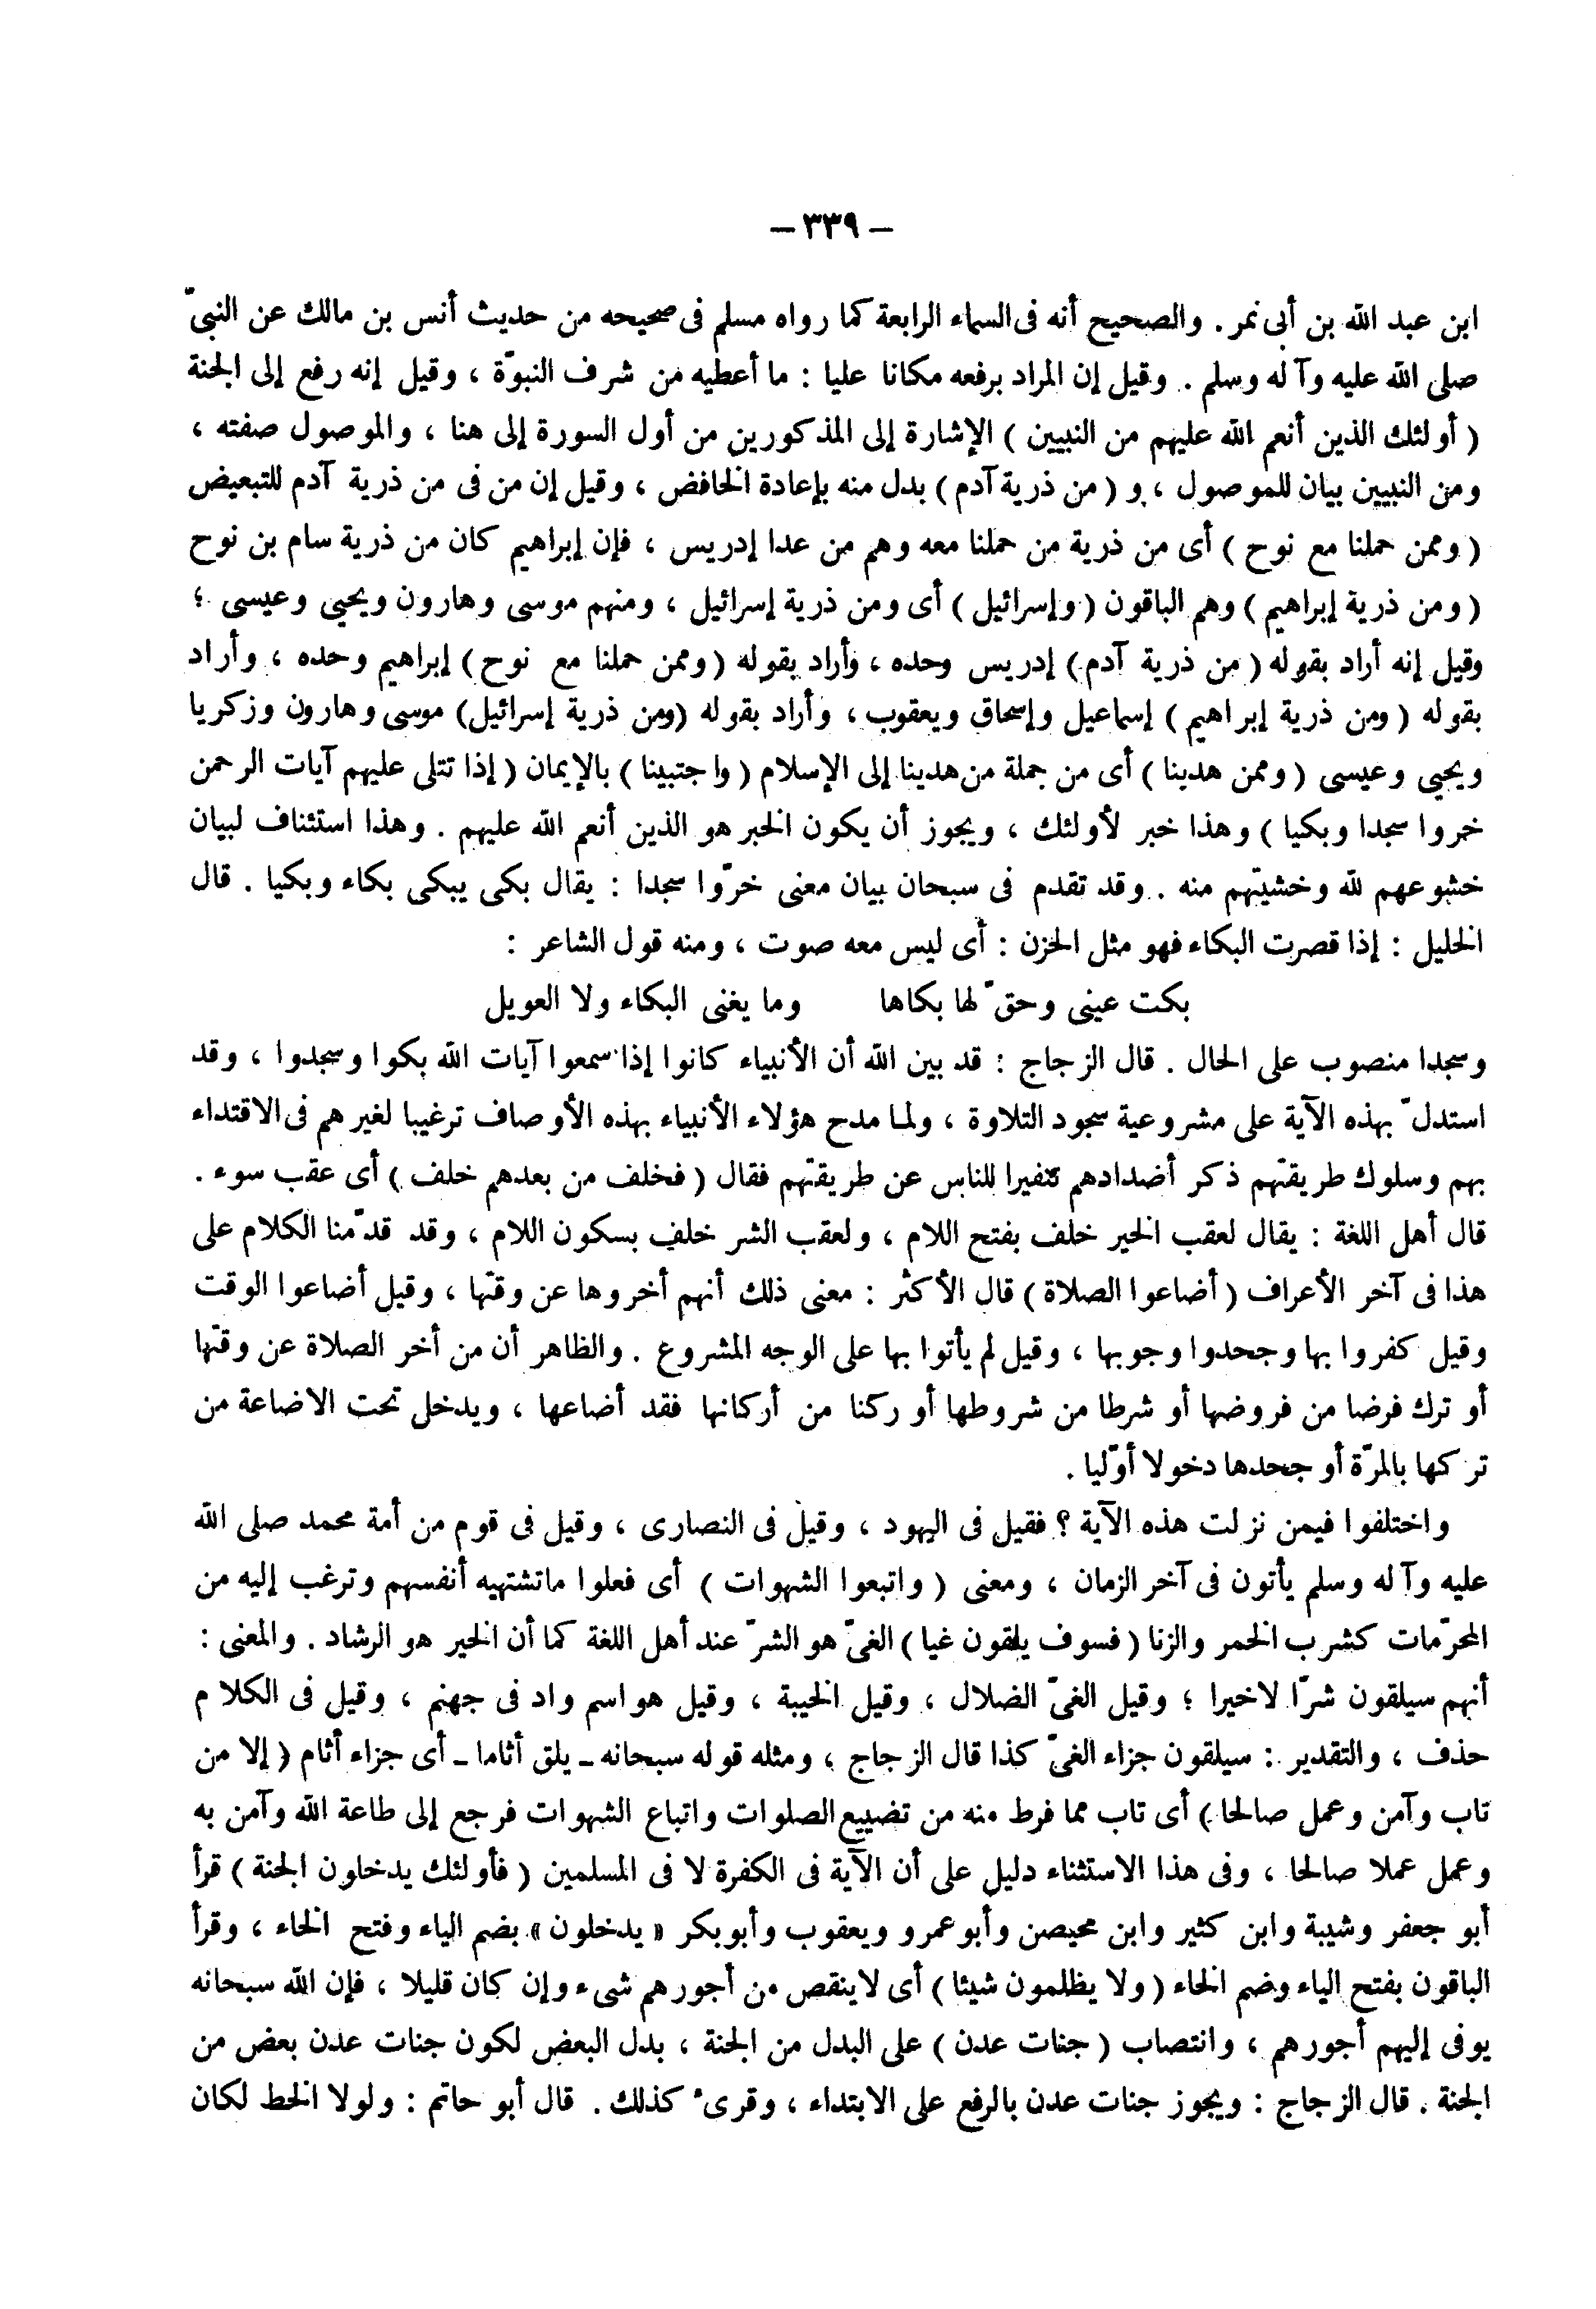 – ٣٣٩ –
ابن عبد الله بن أبى نمر . والصحيح أنه فى السماء الرابعة كما رواه مسلم فى صحيحه من حديث أنس بن مالك عن النبىّ
صلى الله عليه وآله وسلم . وقيل إن المراد برفعه مكانا عليا : ما أعطيه من شرف النبوّة ، وقيل إنه رفع إلى الجنة
( أولئك الذين أنعم الله عليهم من النبيين ) الإشارة إلى المذكورين من أول السورة إلى هنا ، والموصول صفته ،
ومن النبيين بيان للموصول ، و ( من ذرية آدم ) بدل منه بإعادة الخافض ، وقيل إن من فى من ذرية آدم للتبعيض
( وممن حملنا مع نوح ) أى من ذرية من حملنا معه وهم من عدا إدريس ، فإن إبراهيم كان من ذرية سام بن نوح
( ومن ذرية إبراهيم ) وهم الباقون ( وإسرائيل ) أى ومن ذرية إسرائيل ، ومنهم موسى وهارون ويحيى وعيسى ؛
وقيل إنه أراد بقوله ( من ذرية آدم ) إدريس وحده ، وأراد بقوله ( وممن حملنا مع نوح ) إبراهيم وحده ، وأراد
بقوله ( ومن ذرية إبراهيم ) إسماعيل وإسحاق ويعقوب ، وأراد بقوله (ومن ذرية إسرائيل) موسى وهارون وزكريا
ويحيى وعيسى ( وممن هدينا ) أى من جملة من هدينا إلى الإسلام ( واجتبينا ) بالإيمان ( إذا تتلى عليهم آيات الرحمن
خروا سجدا وبكيا ) وهذا خبر لأولئك ، ويجوز أن يكون الخبر هو الذين أنعم الله عليهم . وهذا استئناف لبيان
خشوعهم لله وخشيتهم منه . وقد تقدم فى سبحان بيان معنى خرّوا سجدا : يقال بكى يبكى بكاء وبكيا . قال
الخليل : إذا قصرت البكاء فهو مثل الحزن : أى ليس معه صوت ، ومنه قول الشاعر :
بكت عينى وحقّ لها بكاها وما يغنى البكاء ولا العويل
وسجدا منصوب على الحال . قال الزجاج : قد بين الله أن الأنبياء كانوا إذا سمعوا آيات الله بكوا وسجدوا ، وقد
استدلّ بهذه الآية على مشروعية سجود التلاوة ، ولما مدح هؤلاء الأنبياء بهذه الأوصاف ترغيبا لغيرهم فى الاقتداء
بهم وسلوك طريقتهم ذكر أضدادهم تنفيرا للناس عن طريقتهم فقال ( فخلف من بعدهم خلف ) أى عقب سوء .
قال أهل اللغة : يقال لعقب الخير خلف بفتح اللام ، ولعقب الشر خلف بسكون اللام ، وقد قدّمنا الكلام على
هذا فى آخر الأعراف ( أضاعوا الصلاة ) قال الأكثر : معنى ذلك أنهم أخروها عن وقتها ، وقيل أضاعوا الوقت
وقيل كفروا بها وجحدوا وجوبها ، وقيل لم يأتوا بها على الوجه المشروع . والظاهر أن من أخر الصلاة عن وقتها
أو ترك فرضا من فروضها أو شرطا من شروطها أو ركنا من أركانها فقد أضاعها ، ويدخل تحت الاضاعة من
تركها بالمرّة أو جحدها دخولا أوّليا .
واختلفوا فيمن نزلت هذه الآية ؟ فقيل فى اليهود ، وقيل فى النصارى ، وقيل فى قوم من أمة محمد صلى الله
عليه وآله وسلم يأتون فى آخر الزمان ، ومعنى ( واتبعوا الشهوات ) أى فعلوا ماتشتهيه أنفسهم وترغب إليه من
المحرّمات كشرب الخمر والزنا ( فسوف يلقون غيا ) الغىّ هو الشرّ عند أهل اللغة كما أن الخير هو الرشاد . والمعنى :
أنهم سيلقون شرّا لاخيرا ؛ وقيل الغىّ الضلال ، وقيل الخيبة ، وقيل هو اسم واد فى جهنم ، وقيل فى الكلام
حذف ، والتقدير : سيلقون جزاء الغىّ كذا قال الزجاج ، ومثله قوله سبحانه ـ يلق أثاما ـ أى جزاء أثام ( إلا من
تاب وآمن وعمل صالحا ) أى تاب مما فرط منه من تضييع الصلوات واتباع الشهوات فرجع إلى طاعة الله وآمن به
وعمل عملا صالحا ، وفى هذا الاستثناء دليل على أن الآية فى الكفرة لا فى المسلمين ( فأولئك يدخلون الجنة ) قرأ
أبو جعفر وشيبة وابن كثير وابن محيصن وأبو عمرو ويعقوب وأبوبكر « يدخلون » بضم الياء وفتح الخاء ، وقرأ
الباقون بفتح الياء وضم الخاء ( ولا يظلمون شيئا ) أى لاينقص من أجورهم شىء وإن كان قليلا ، فإن الله سبحانه
يوفى إليهم أجورهم ، وانتصاب ( جنات عدن ) على البدل من الجنة ، بدل البعض لكون جنات عدن بعض من
الجنة . قال الزجاج : ويجوز جنات عدن بالرفع على الابتداء ، وقرىء كذلك . قال أبو حاتم : ولولا الخط لكان